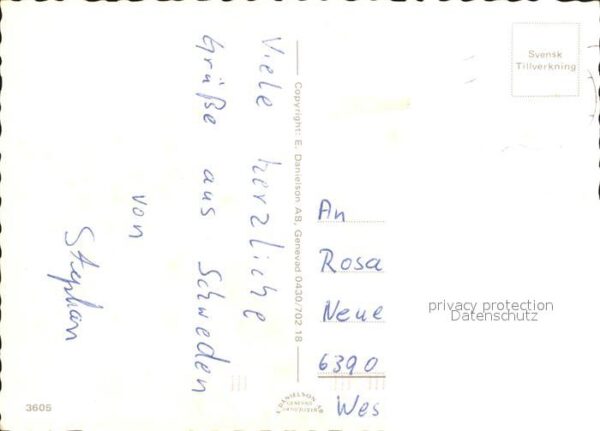 Viele herzliche
Grüße aus Schweden
von
Stephan
Copyright: E. Danielson AB, Genevad 0430/702 18
Svensk
Tillverkning
An
Rosa
Neue
6390
Wes
privacy protection
Datenschutz
DANIELSON
GENEVAD
3605